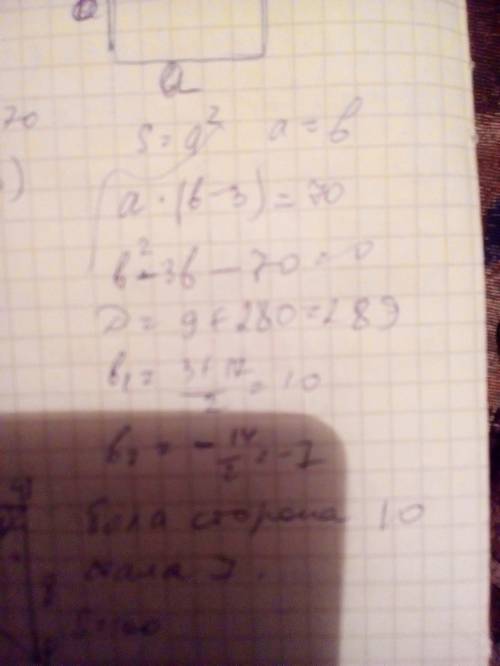 a
70
S = a² a = b
)
a · (b - 3) = 70
b² - 3b - 70 = 0
D = 9 + 280 = 289
b₁ = (3 + 17)/2 = 10
b₂ = - 14/2 = -7
была сторона 10
стала 7.
S = 100